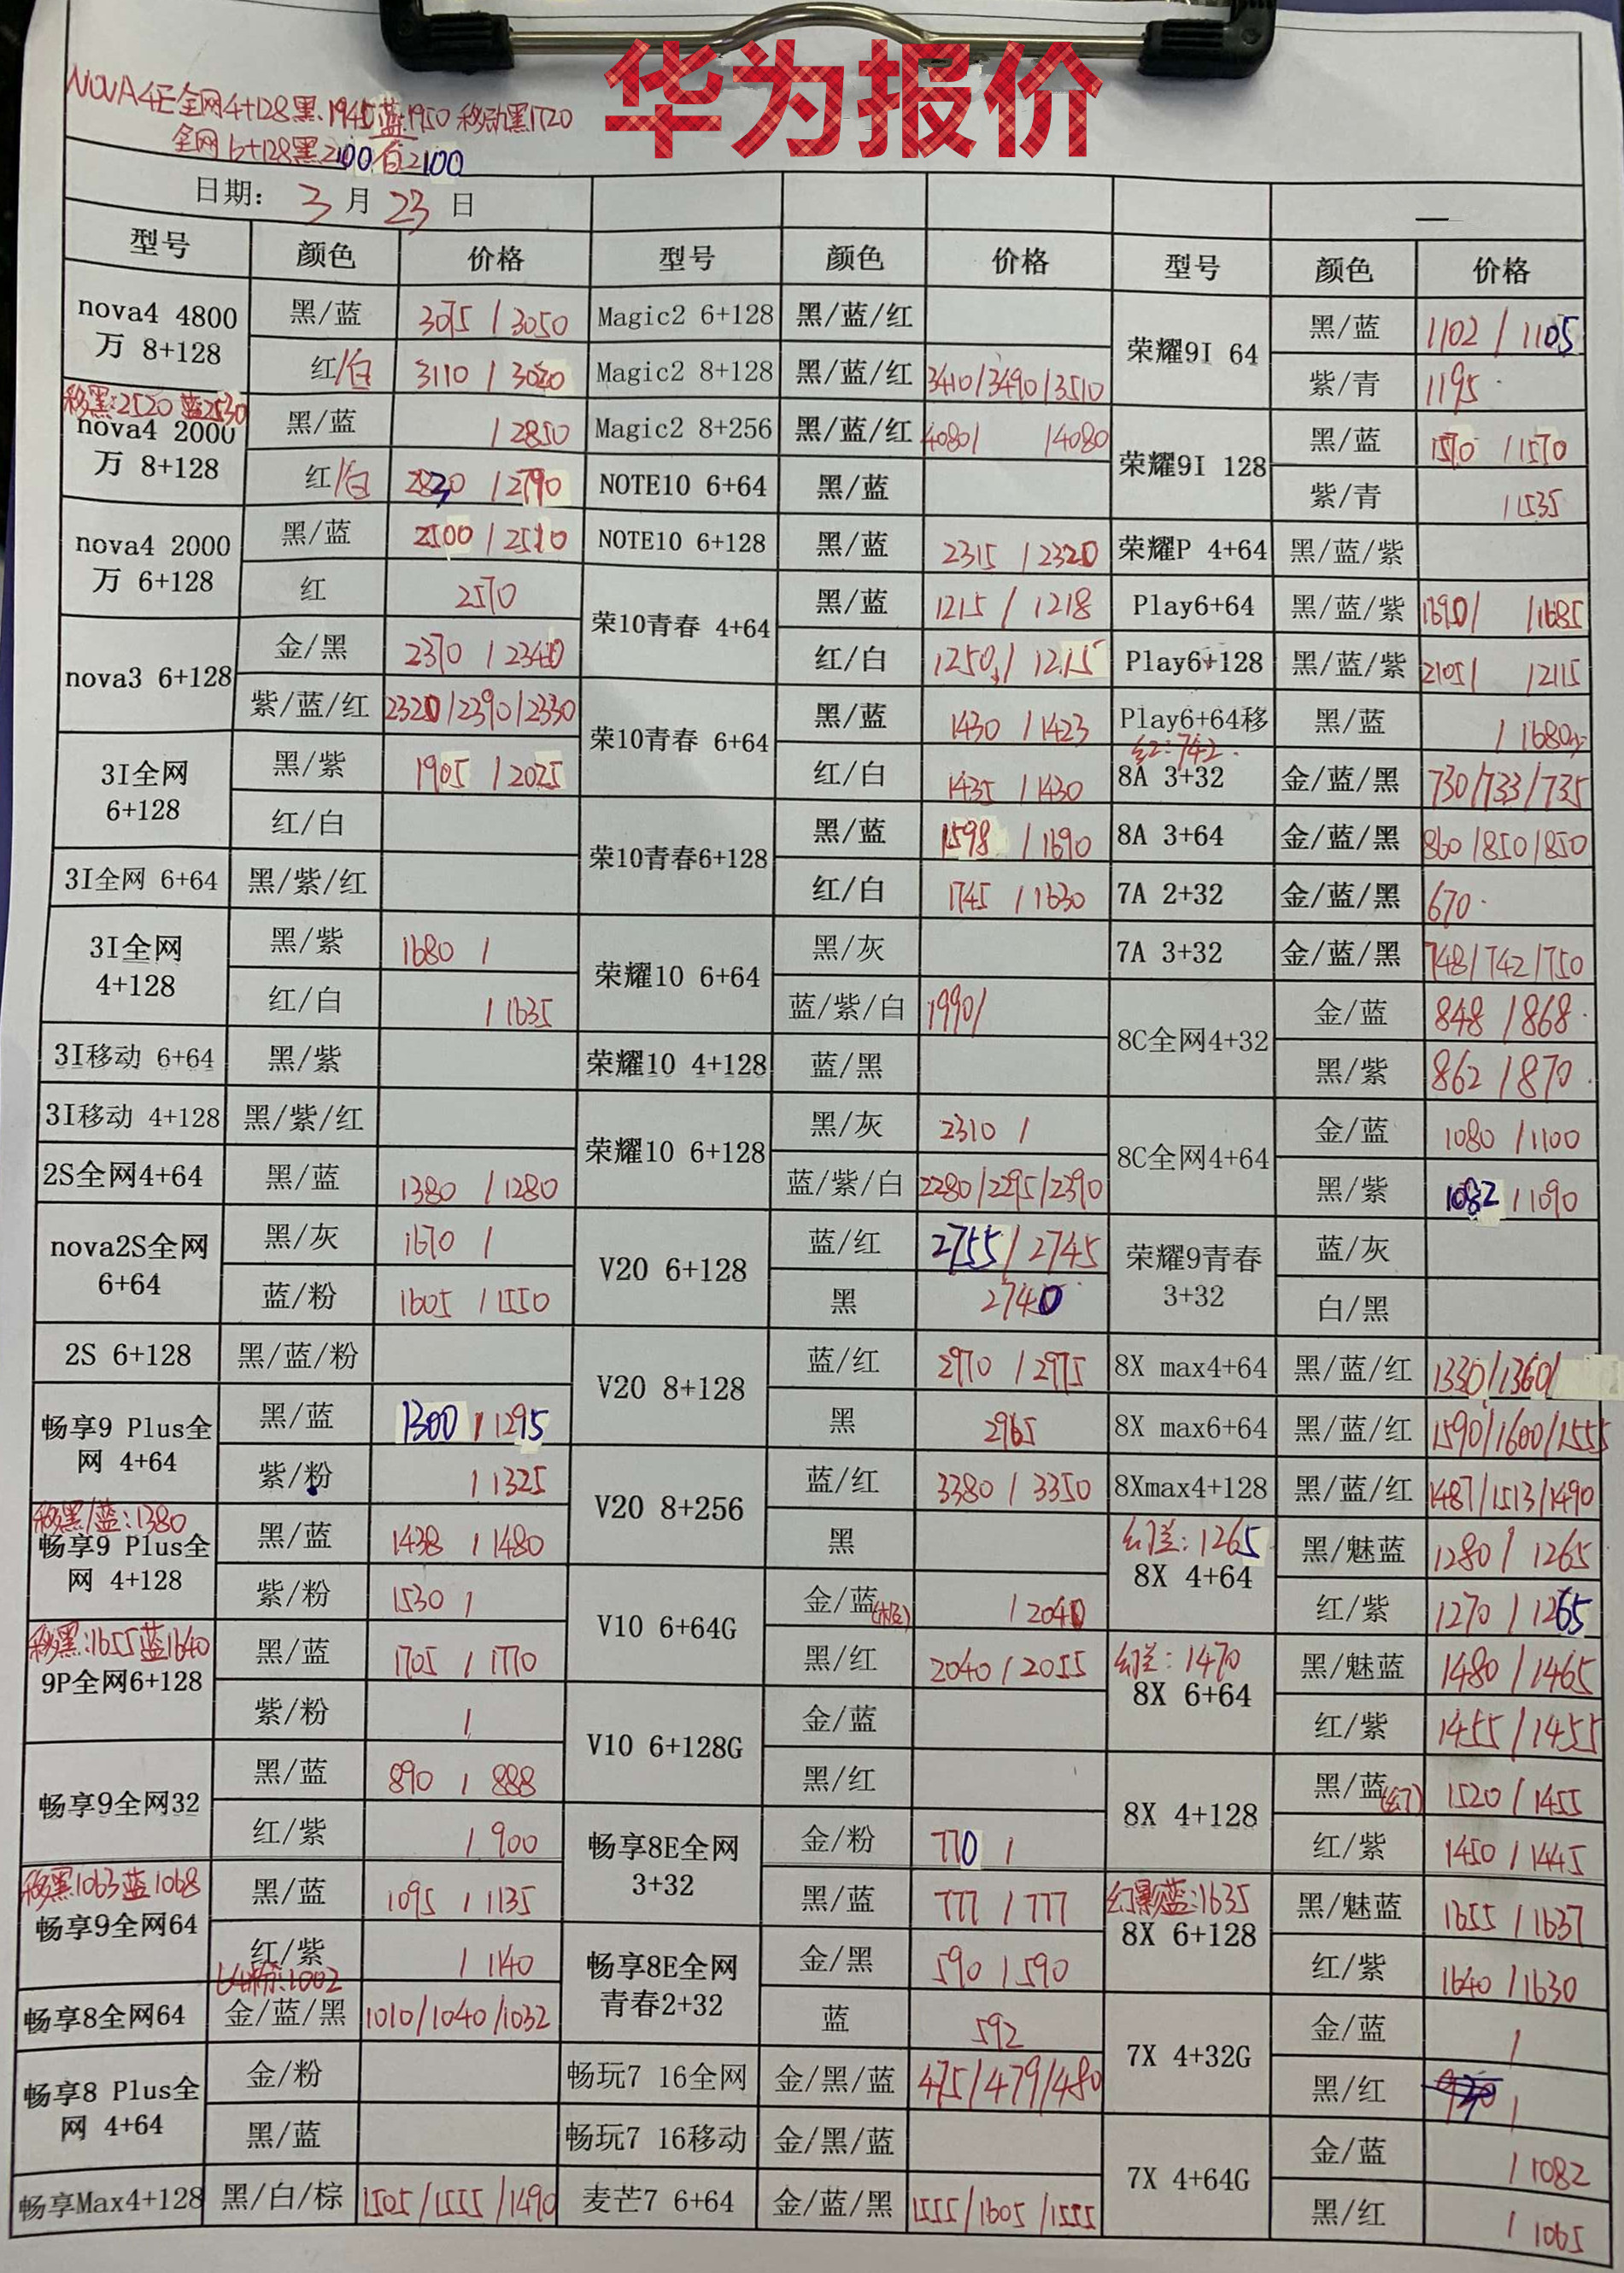 华为报价
NOVA4E全网4+128黑.1945蓝.1950 移动黑1720
全网6+128黑2100/白2100
日期: 3 月 23 日
型号 颜色 价格 型号 颜色 价格 型号 颜色 价格
nova4 4800万 8+128 黑/蓝 3075 / 3050
红/白 3110 / 3020
移黑:2520 蓝2530
nova4 2000万 8+128 黑/蓝 / 2850
红/白 2820 / 2790
nova4 2000万 6+128 黑/蓝 2500 / 2510
红 2570
nova3 6+128 金/黑 2370 / 2340
紫/蓝/红 2320/2390/2330
3I全网 6+128 黑/紫 1905 / 2025
红/白
3I全网 6+64 黑/紫/红
3I全网 4+128 黑/紫 1680 /
红/白 / 1635
3I移动 6+64 黑/紫
3I移动 4+128 黑/紫/红
2S全网4+64 黑/蓝 1380 / 1280
nova2S全网 6+64 黑/灰 1670 /
蓝/粉 1605 / 1550
2S 6+128 黑/蓝/粉
畅享9 Plus全网 4+64 黑/蓝 1300 / 1295
紫/粉 / 1325
移黑/蓝:1380
畅享9 Plus全网 4+128 黑/蓝 1438 / 1480
紫/粉 1530 /
移黑:1655蓝1640
9P全网6+128 黑/蓝 1705 / 1770
紫/粉 /
畅享9全网32 黑/蓝 890 / 888
红/紫 / 900
移黑1063蓝1068
畅享9全网64 黑/蓝 1095 / 1135
红/紫 / 1140
64粉:1002
畅享8全网64 金/蓝/黑 1010/1040/1032
畅享8 Plus全网 4+64 金/粉
黑/蓝
畅享Max4+128 黑/白/棕 1505/1555/1490
Magic2 6+128 黑/蓝/红
Magic2 8+128 黑/蓝/红 3410/3490/3510
Magic2 8+256 黑/蓝/红 4080/ /4080
NOTE10 6+64 黑/蓝
NOTE10 6+128 黑/蓝 2315 / 2320
荣10青春 4+64 黑/蓝 1215 / 1218
红/白 1250 / 1215
荣10青春 6+64 黑/蓝 1430 / 1423
红/白 1435 / 1430
荣10青春6+128 黑/蓝 1598 / 1690
红/白 1745 / 1630
荣耀10 6+64 黑/灰
蓝/紫/白 1990/
荣耀10 4+128 蓝/黑
荣耀10 6+128 黑/灰 2310 /
蓝/紫/白 2280/2295/2390
V20 6+128 蓝/红 2755 / 2745
黑 2740
V20 8+128 蓝/红 2970 / 2975
黑 2965
V20 8+256 蓝/红 3380 / 3350
黑
V10 6+64G 金/蓝 / 2040
黑/红 2040 / 2055
V10 6+128G 金/蓝
黑/红
畅享8E全网 3+32 金/粉 770 /
黑/蓝 777 / 777
畅享8E全网青春2+32 金/黑 590 / 590
蓝 592
畅玩7 16全网 金/黑/蓝 475/479/480
畅玩7 16移动 金/黑/蓝
麦芒7 6+64 金/蓝/黑 1555/1605/1555
荣耀9I 64 黑/蓝 1102 / 1105
紫/青 1195
荣耀9I 128 黑/蓝 1570 / 1570
紫/青 / 1535
荣耀P 4+64 黑/蓝/紫
Play6+64 黑/蓝/紫 1690/ /1685
Play6+128 黑/蓝/紫 2105/ /2115
Play6+64移 黑/蓝 / 1680
红:742
8A 3+32 金/蓝/黑 730/733/735
8A 3+64 金/蓝/黑 860/850/850
7A 2+32 金/蓝/黑 670
7A 3+32 金/蓝/黑 748/742/750
8C全网4+32 金/蓝 848 / 868
黑/紫 862 / 870
8C全网4+64 金/蓝 1080 / 1100
黑/紫 1082 / 1090
荣耀9青春 3+32 蓝/灰
白/黑
8X max4+64 黑/蓝/红 1330/1360/
8X max6+64 黑/蓝/红 1590/1600/1555
8Xmax4+128 黑/蓝/红 1487/1513/1490
幻兰:1265
8X 4+64 黑/魅蓝 1280 / 1265
红/紫 1270 / 1265
幻兰:1470
8X 6+64 黑/魅蓝 1480 / 1465
红/紫 1455 / 1455
8X 4+128 黑/蓝(幻) 1520 / 1455
红/紫 1450 / 1445
幻影蓝:1635
8X 6+128 黑/魅蓝 1655 / 1637
红/紫 1640 / 1630
7X 4+32G 金/蓝 /
黑/红 /
7X 4+64G 金/蓝 / 1082
黑/红 / 1065